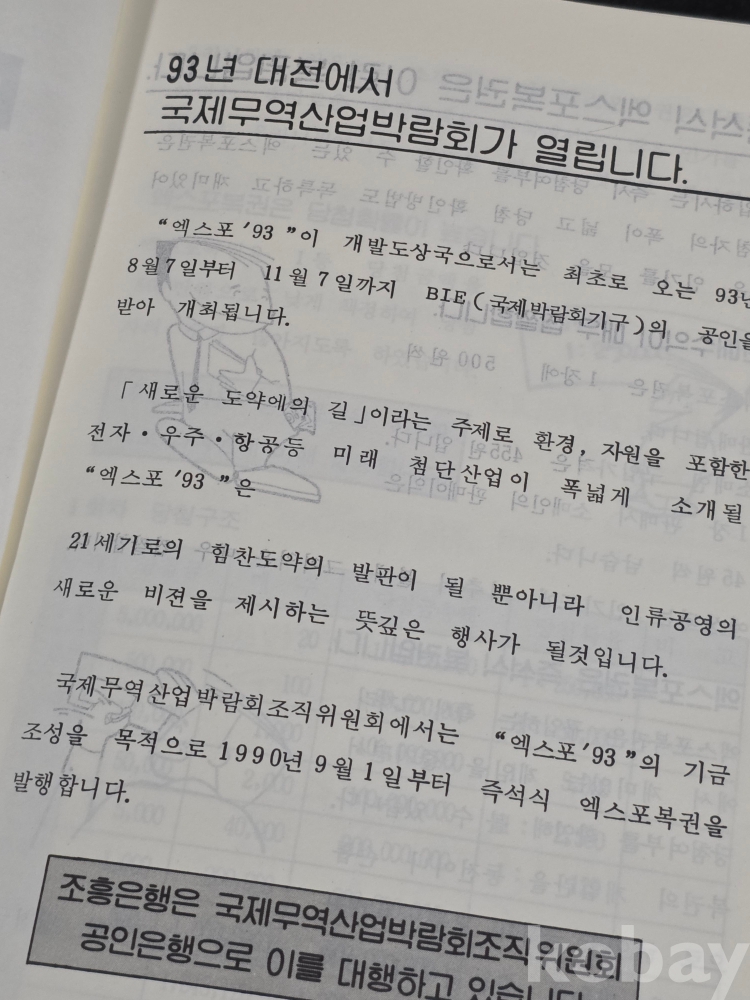 93년 대전에서
국제무역산업박람회가 열립니다.
“엑스포 ’93 ”이 개발도상국으로서는 최초로 오는 93년
8월7일부터 11월 7일까지 BIE ( 국제박람회기구 )의 공인을
받아 개최됩니다.
「새로운 도약에의 길」이라는 주제로 환경, 자원을 포함한
전자·우주·항공등 미래 첨단산업이 폭넓게 소개될
“엑스포 ’93 ”은
21세기로의 힘찬도약의 발판이 될 뿐아니라 인류공영의
새로운 비젼을 제시하는 뜻깊은 행사가 될것입니다.
국제무역산업박람회조직위원회에서는 “엑스포’93 ”의 기금
조성을 목적으로 1990년 9월 1일부터 즉석식 엑스포복권을
발행합니다.
조흥은행은 국제무역산업박람회조직위원회
공인은행으로 이를 대행하고 있습니다
kobay